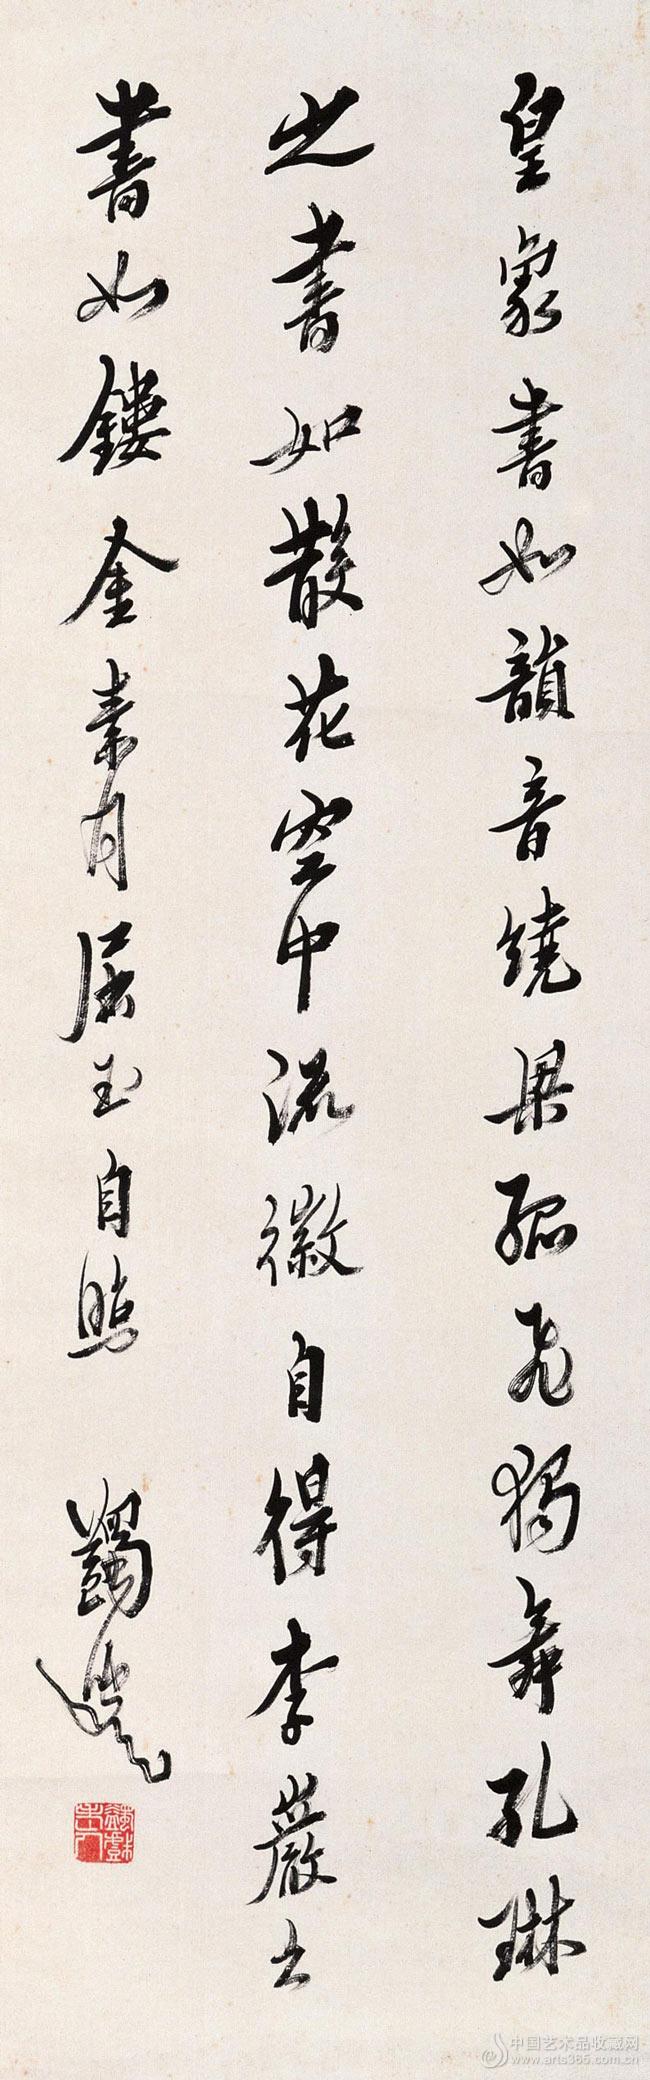 皇象書如韻音繞梁孤飛獨舞孔琳
之書如散花空中流徽自得李嚴之
書如鏤金素月屈玉自照
蠲叟
中国艺术品收藏网
www.arts365.com.cn